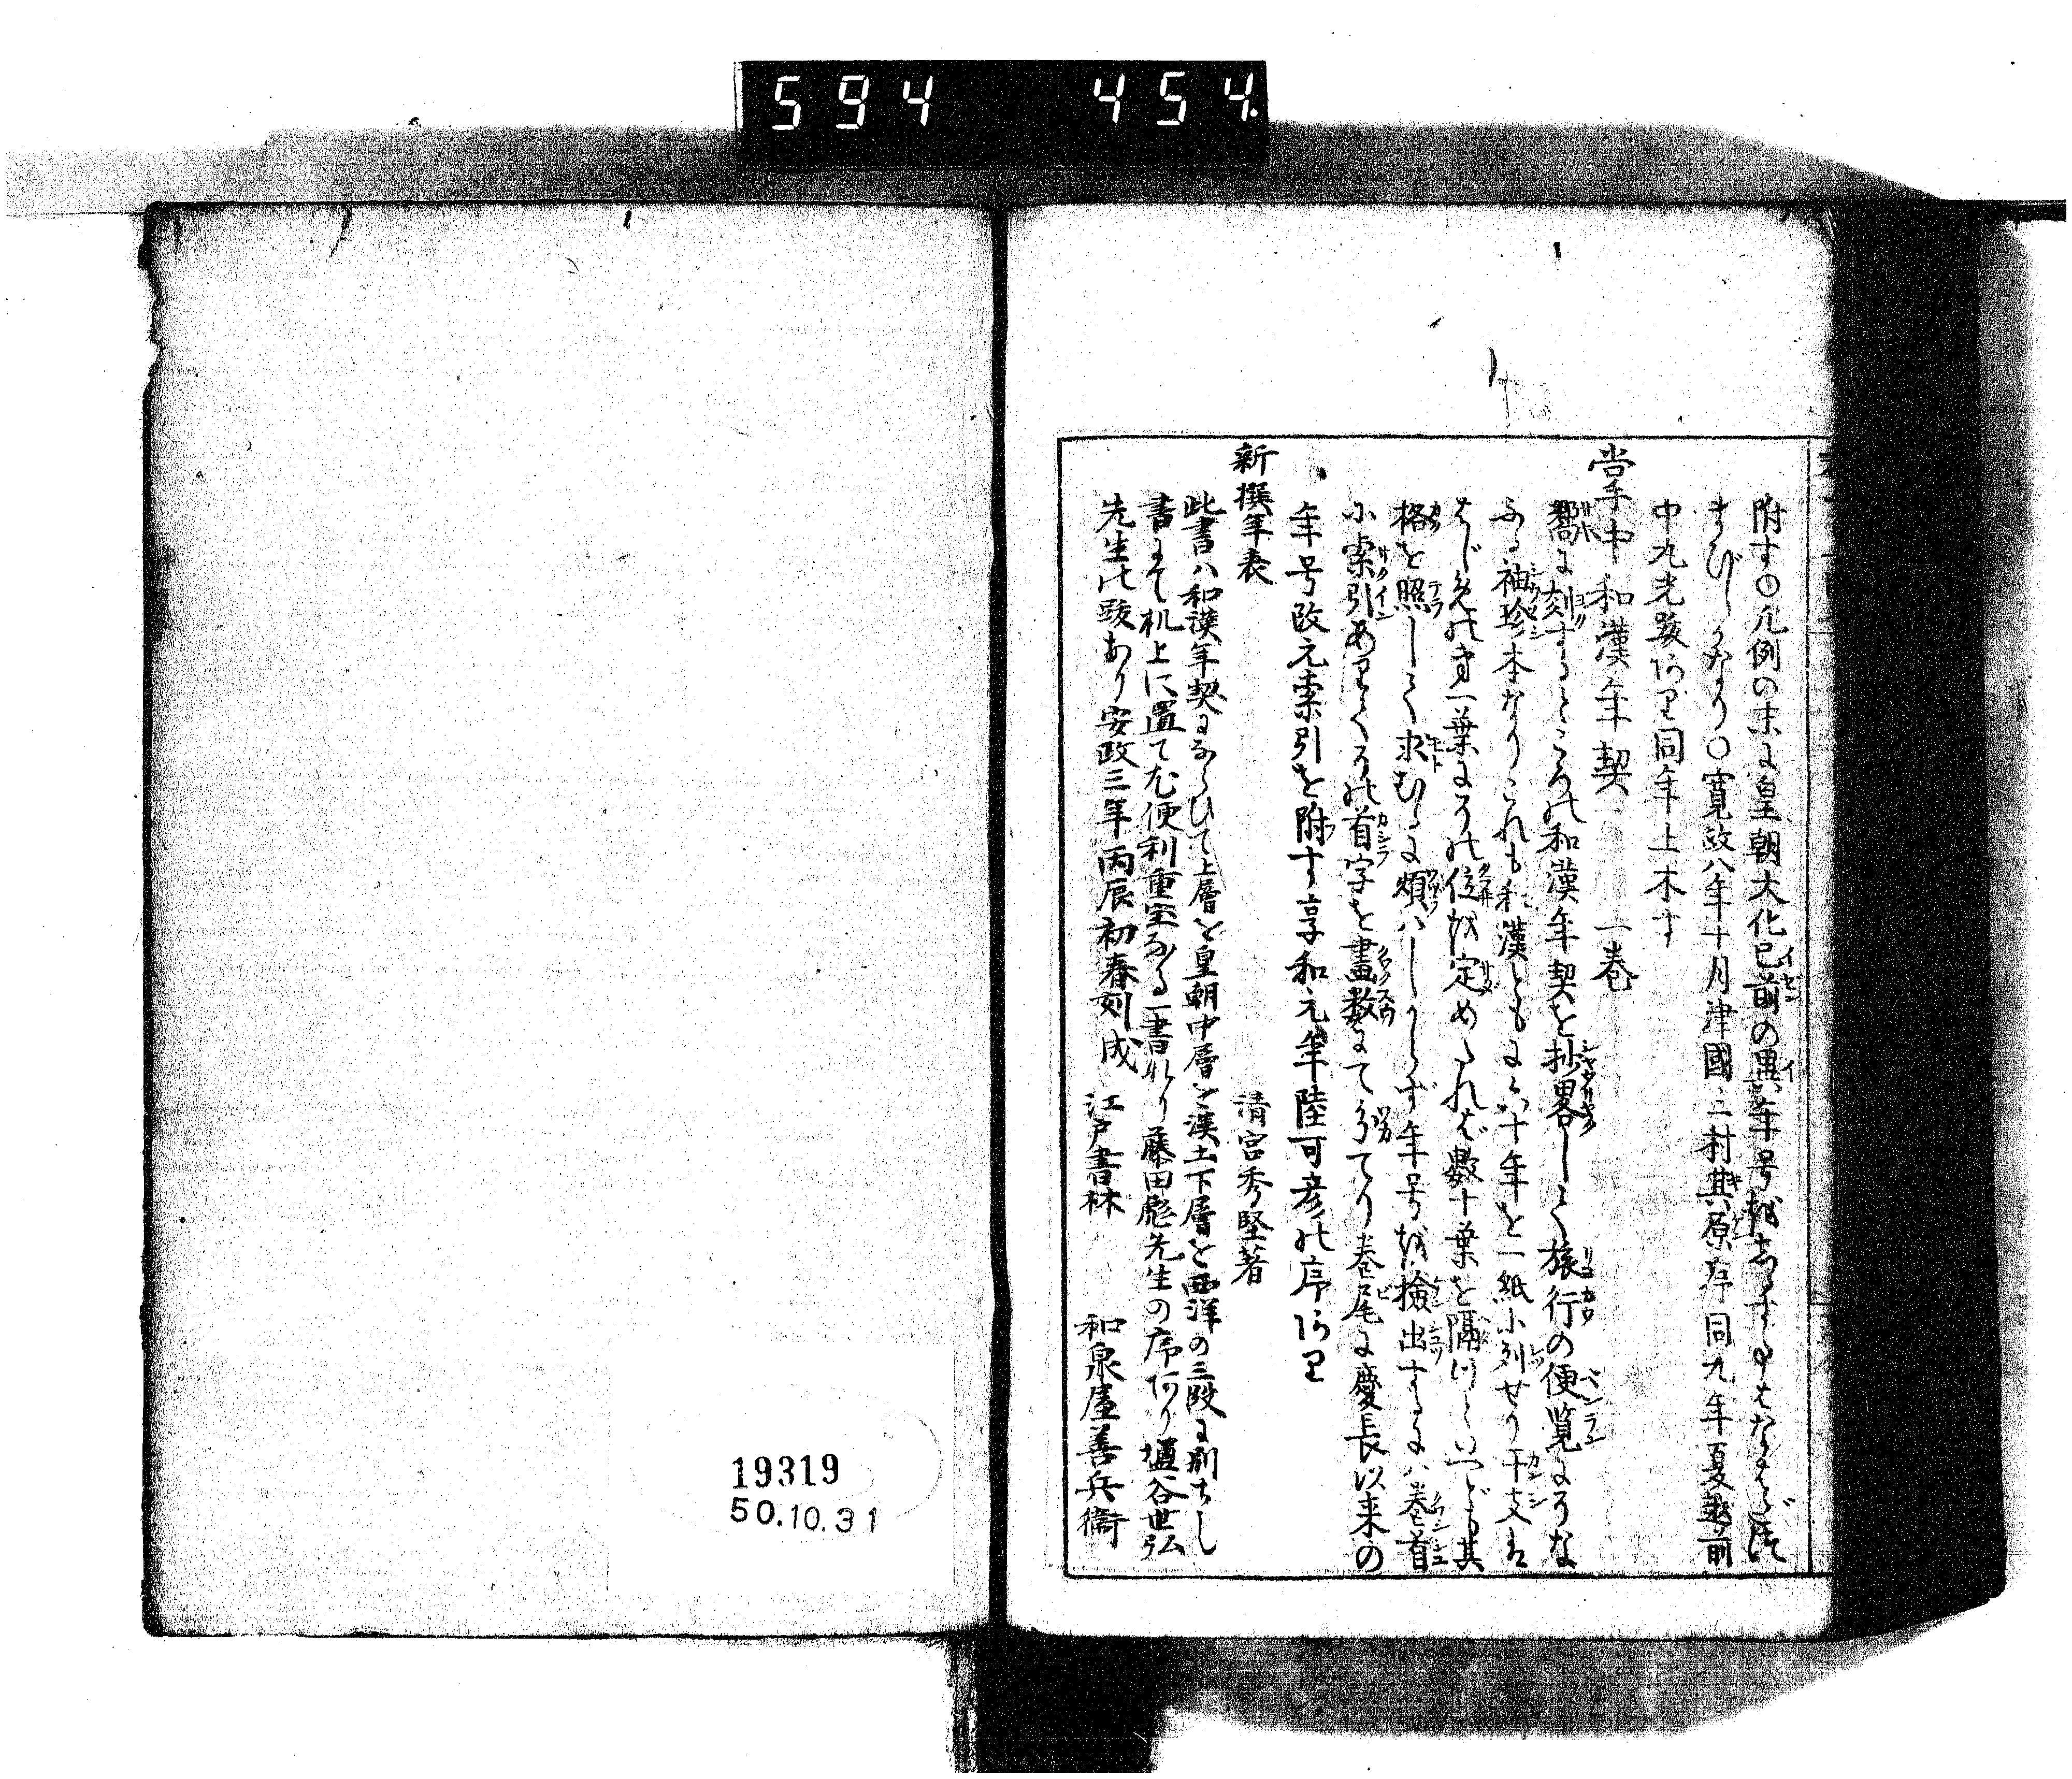 594 454.
附す〇凡例の末に皇朝大化已前の異年号をしるす
〇寛政八年十月津國二村其原序同九年夏越前
中九光跋あり同年上木す
掌中和漢年契 一巻
嚮に刻するところの和漢年契を抄畧して旅行の便覧にそな
ふる袖珍本なりこれも和漢ともに六十年を一紙に列せり干支は
はじめの第一葉にその位を定めたれば數十葉を隔つといへども其
格を照して求むるに煩はしからず年号を檢出するには巻首
に索引ありてその首字を畫數にて分てり巻尾に慶長以来の
年号改元索引を附す享和元年陸可彦の序あり
新撰年表 清宮秀堅著
此書ハ和漢年契にならひて上層を皇朝中層を漢土下層を西洋の三段に別ちし
書にて机上に置て尤便利重宝なる一書なり藤田彪先生の序あり塩谷世弘
先生の跋あり安政三年丙辰初春刻成 江戸書林 和泉屋善兵衞
19319
50.10.31